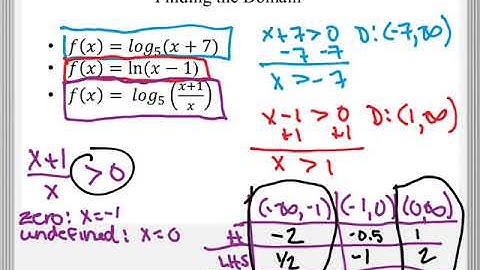 Finding the Domain
• f(x) = log₅(x + 7)
• f(x) = ln(x − 1)
• f(x) = log₅((x+1)/x)
x+7>0 D: (-7, ∞)
-7 -7
x > -7
x-1 > 0 D: (1, ∞)
+1 +1
x > 1
(x+1)/x > 0
zero: x=-1
undefined: x=0
(-∞, -1) (-1, 0) (0, ∞)
# -2 -0.5 1
LHS 1/2 -1 2